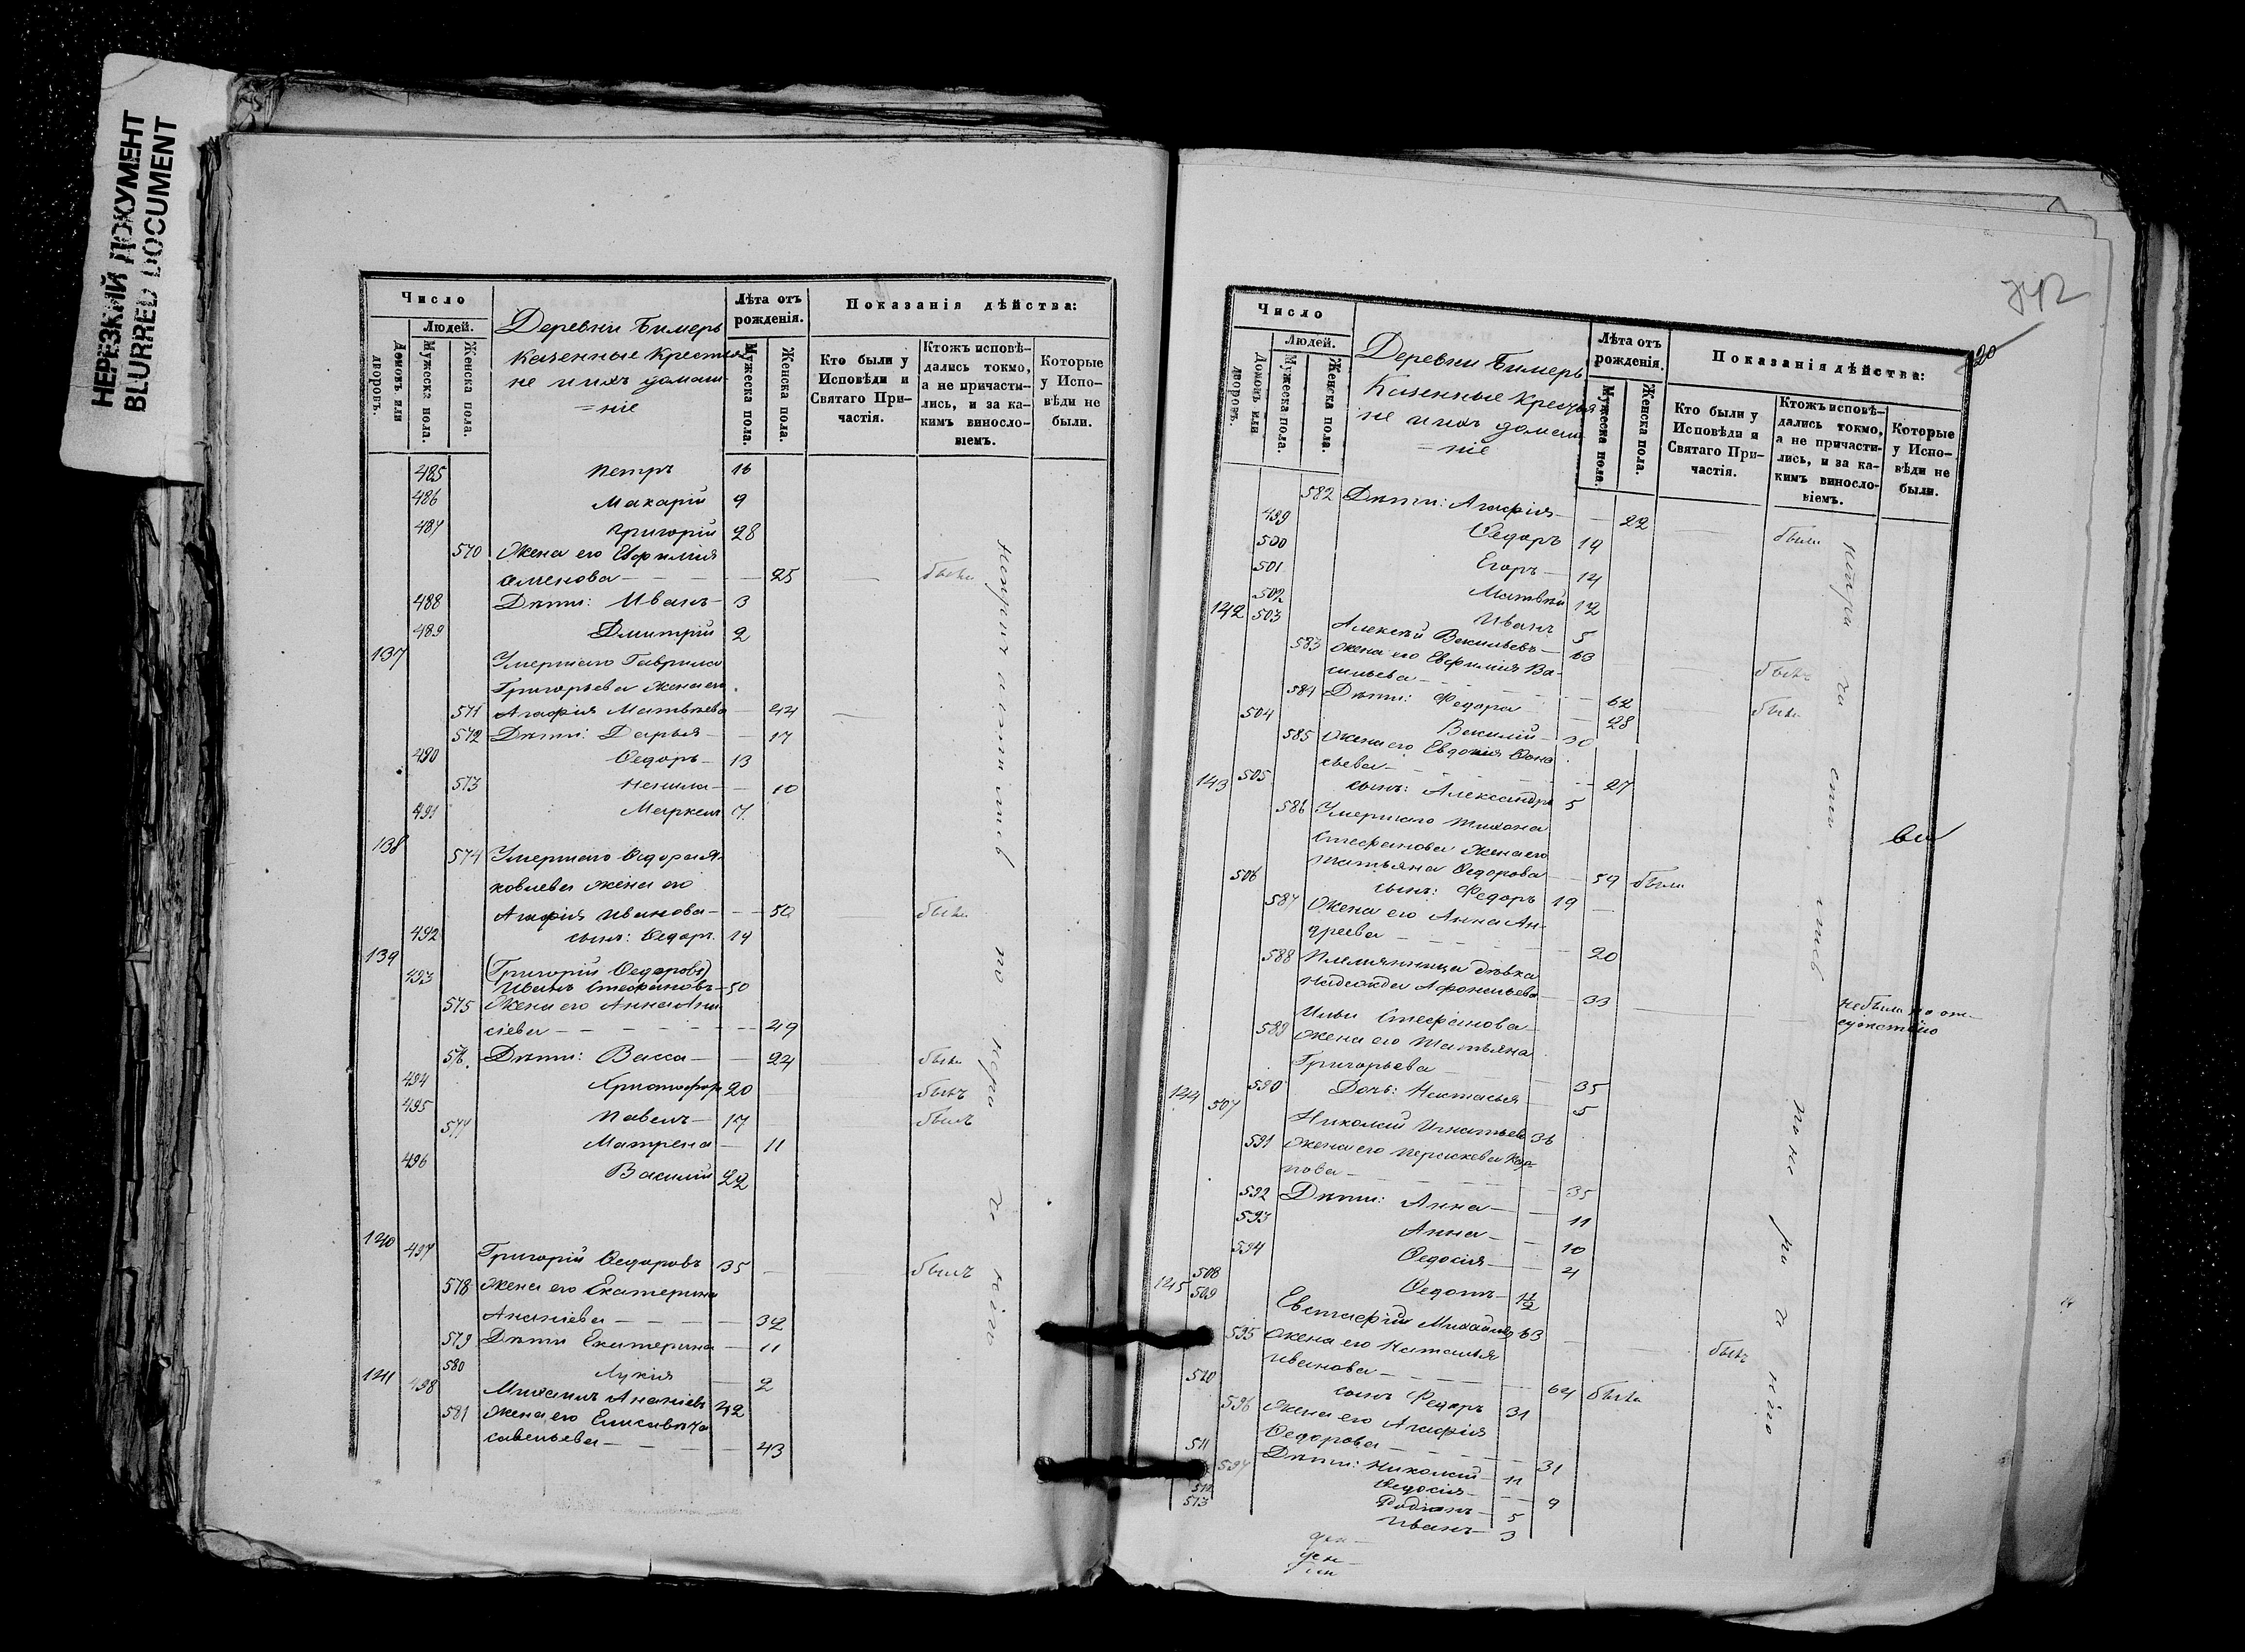 НЕРЕЗКИЙ ДОКУМЕНТ
BLURRED DOCUMENT
Число
Людей.
Домовъ или дворовъ.
Мужеска пола.
Женска пола.
Деревни Бимерь
казенные крестья
не и ихъ домаш-
=ніе
Лѣта отъ рожденія.
Мужеска пола.
Женска пола.
Показанія дѣйства:
Кто были у Исповѣди и Святаго Причастія.
Ктожъ исповѣдались токмо, а не причастились, и за какимъ винословіемъ.
Которые у Исповѣди не были.
485 Петръ 16
486 Макарій 9
487 Григорій 28
570 Жена его Евфимія
Семенова 25 были
488 Дѣти: Иванъ 3
489 Дмитрій 2
137 Умершаго Гаврила
Григорьева жена его
571 Агафія Матвѣева 44
572 Дѣти: Дарья 17
490 Ѳедоръ 13
573 Ненила 10
491 Маркелъ 7
138 574 Умершаго Ѳедора Я-
ковлева жена его
Агафія Иванова 50 были
492 сынъ: Ѳедоръ 19
139 (Григорій Ѳедоровъ)
493 Иванъ Стефановъ 50
575 Жена его Анна Ани
сіева 49
576. Дѣти: Васса 24 были
494 Христофоръ 20 былъ
495 Павелъ 17 былъ
577 Матрена 11
496 Василій 22
140 497 Григорій Ѳедоровъ 35 былъ
578 Жена его Екатерина
Ананіева 32
579 Дѣти Екатерина 11
580 Лукія 2
141 498 Михаилъ Ананіевъ 42
581 Жена его Елисавѣта
Савельева 43
742
420
Число
Людей.
Домовъ или дворовъ.
Мужеска пола.
Женска пола.
Деревни Бимерь
Казенные крестья
не и ихъ домаш
=ніе
Лѣта отъ рожденія.
Мужеска пола.
Женска пола.
Показанія дѣйства:
Кто были у Исповѣди и Святаго Причастія.
Ктожъ исповѣдались токмо, а не причастились, и за какимъ винословіемъ.
Которые у Исповѣди не были.
582 Дѣти: Агафія 22 были
499 Ѳедоръ 19
500 Егоръ 14
501 Матвѣй 12
502 Иванъ 5
142 503 Алексѣй Васильевъ 63
583 Жена его Евфимія Ва-
сильева 62 былъ
584 Дѣти: Федора 28 были
504 Василій 30
585 Жена его Евдокія Ѳона
сьева 27
505 сынъ: Александръ 5
143 586 Умершаго Тихона
Стефанова жена его
Татьяна Ѳедорова 59 были
506 сынъ: Федоръ 19
587 Жена его Анна Ан-
дреева 20
588 Племянница дѣвка
Надежда Афонасьева 33 не была по от-
сутствію
Ильи Стефанова
589 жена его Татьяна
Григорьева 35
590 Дочь: Настасья 5
144 507 Николай Игнатьевъ 36
591 Жена его Параскева Кар
пова 35
592 Дѣти: Анна 11
593 Анна 10
594 Ѳедосія 4
508 Ѳедотъ 1 1/2
145 509 Евстафій Михайловъ 63 былъ
595 Жена его Наталья
Иванова 64 были
510 сынъ Федоръ 31
596 Жена его Агафія
Ѳедорова 31
511 Дѣти: Николай 11
597 Ѳедосія 9
512 Родіонъ 5
513 Иванъ 3